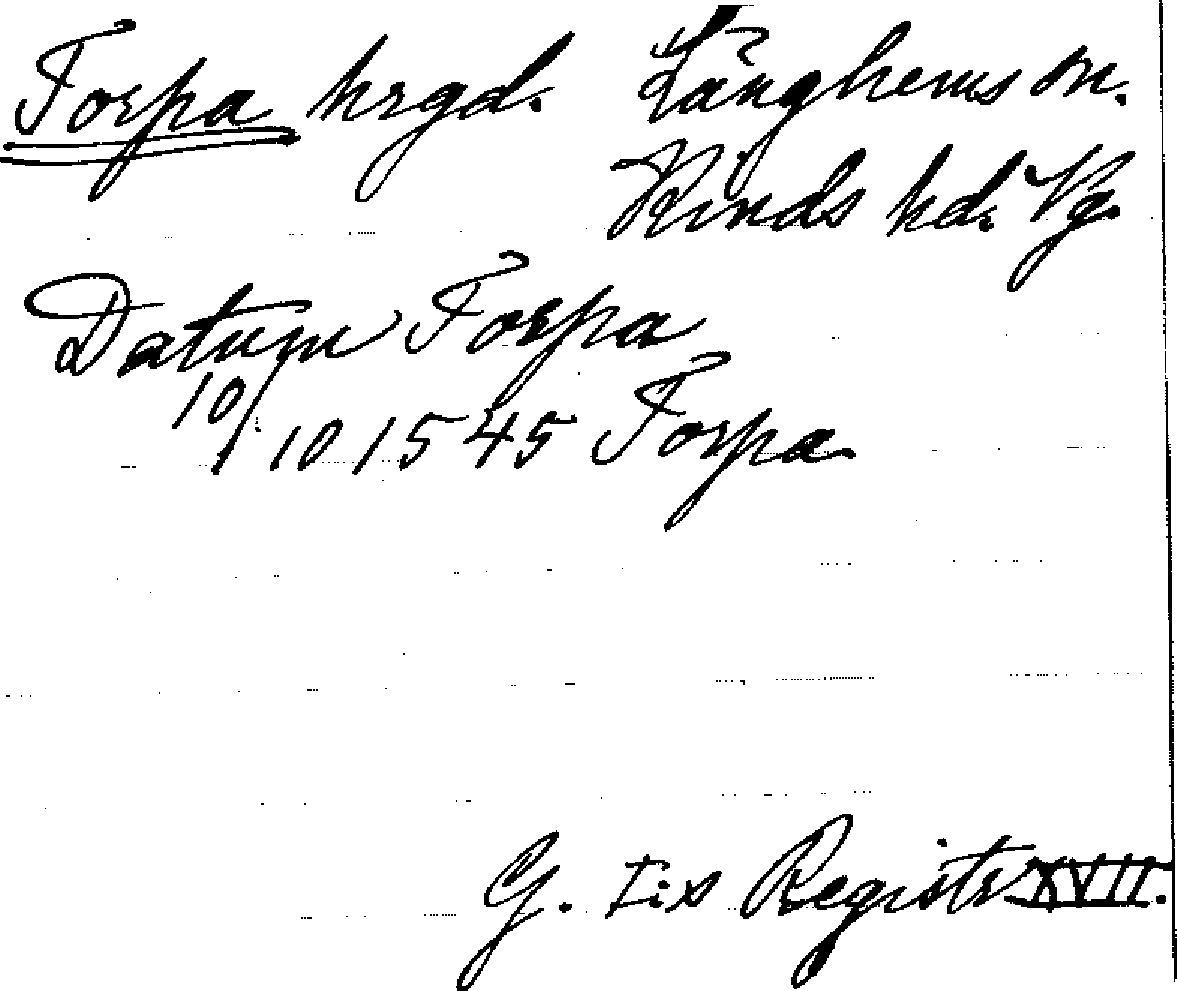 Torpa hrgd. Länghems sn.
Kinds hd. Vg.
Datum Torpa
10/10 1545 Torpa.
G. I:is Registr XVII.